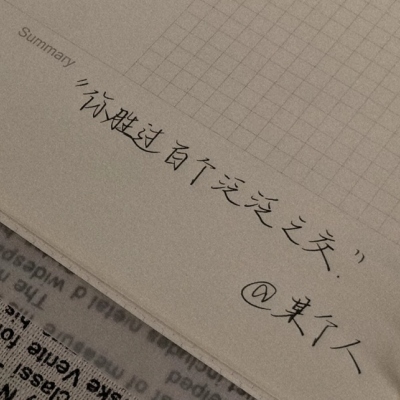 Summary
“你胜过百个泛泛之交.”
@某个人
The n
d widespre
includes metal
of measure
ped
Classi
for
ske Verite